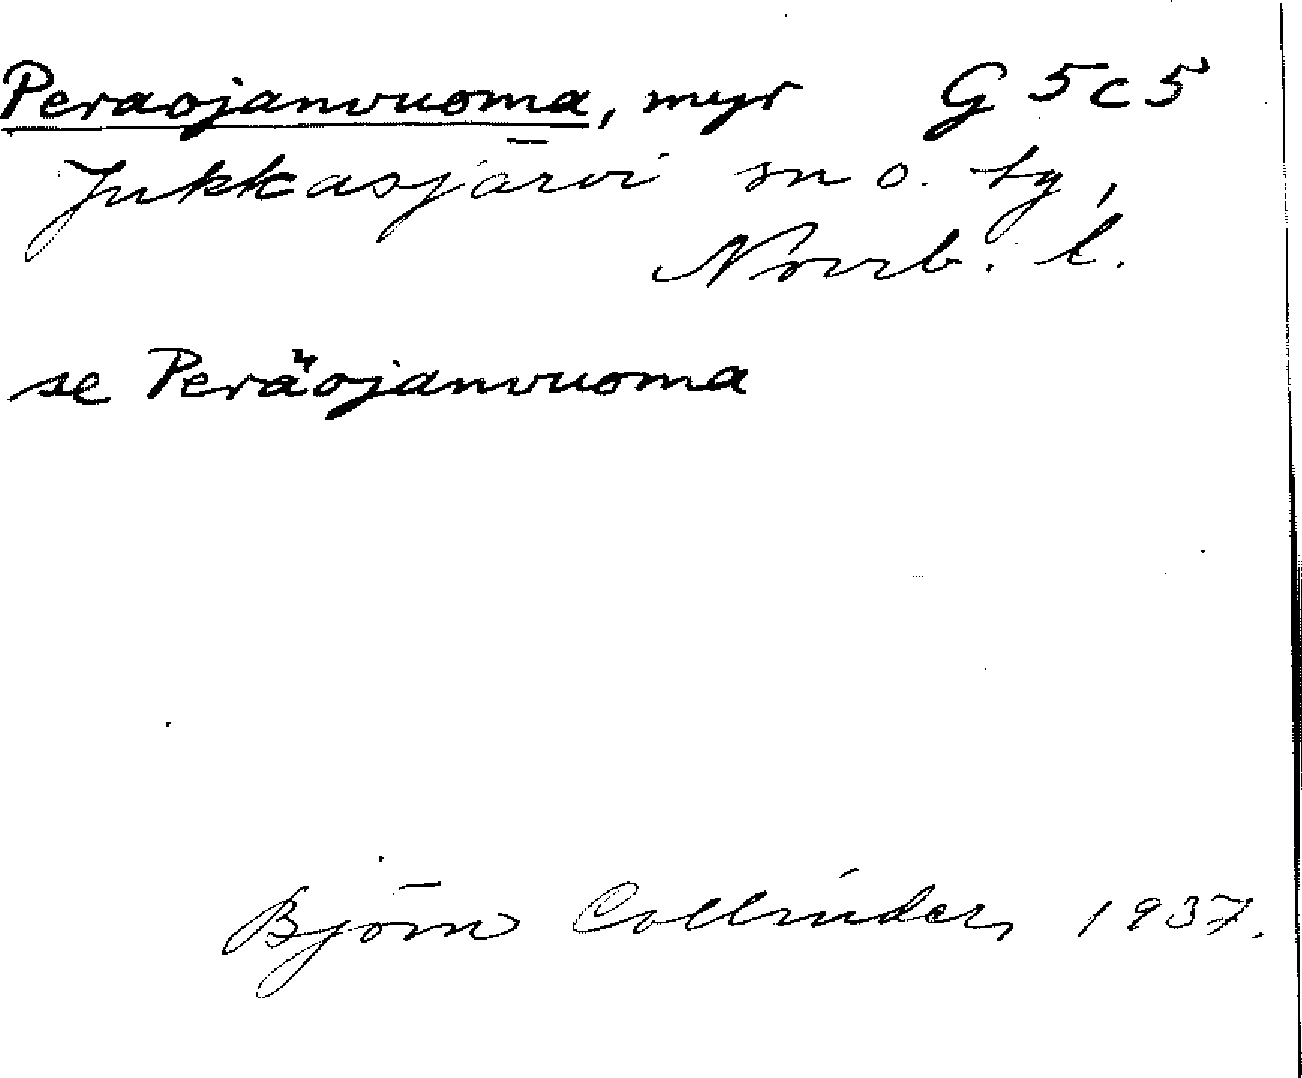 Peraojanvuoma, myr G5c5
Jukkasjärvi sn o. tg,
Norrb. l.
se Peräojanvuoma
Björn Collinder, 1937.